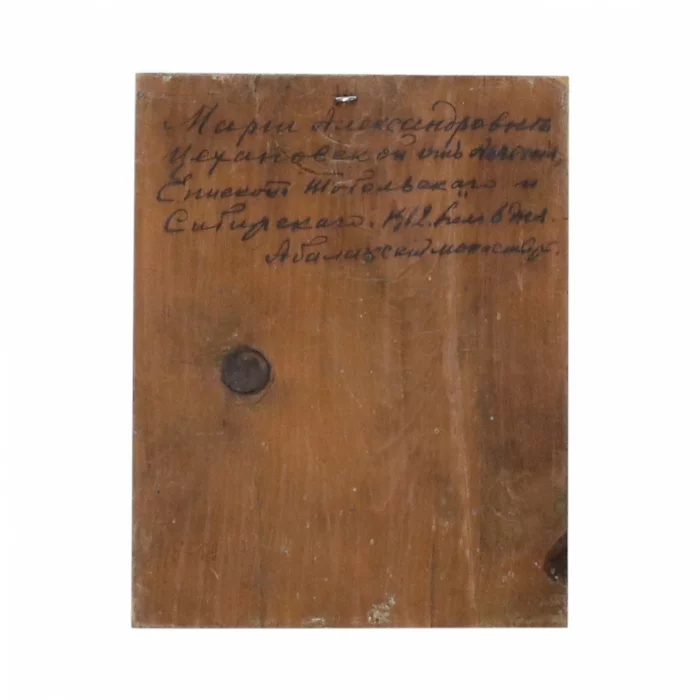 Маріи Александровнѣ
Цехановской отъ
Епископъ Тобольскаго и
Сибирскаго. 1912.
Абалакскій монастырь.